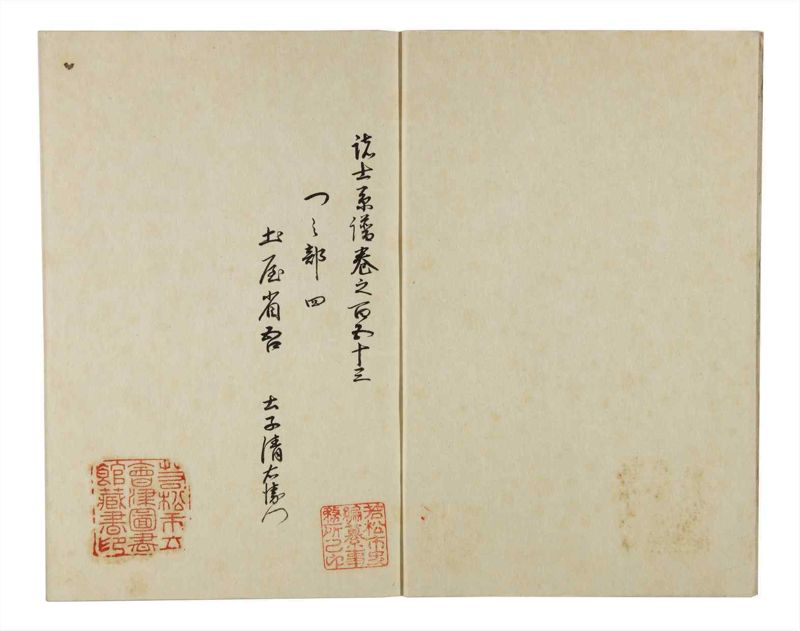 諸士系譜巻之百五十三
つ之部四
土屋省吾　土子清右衛門
若松市立
會津圖書
館藏書印
若松市史
編纂事
務所之印